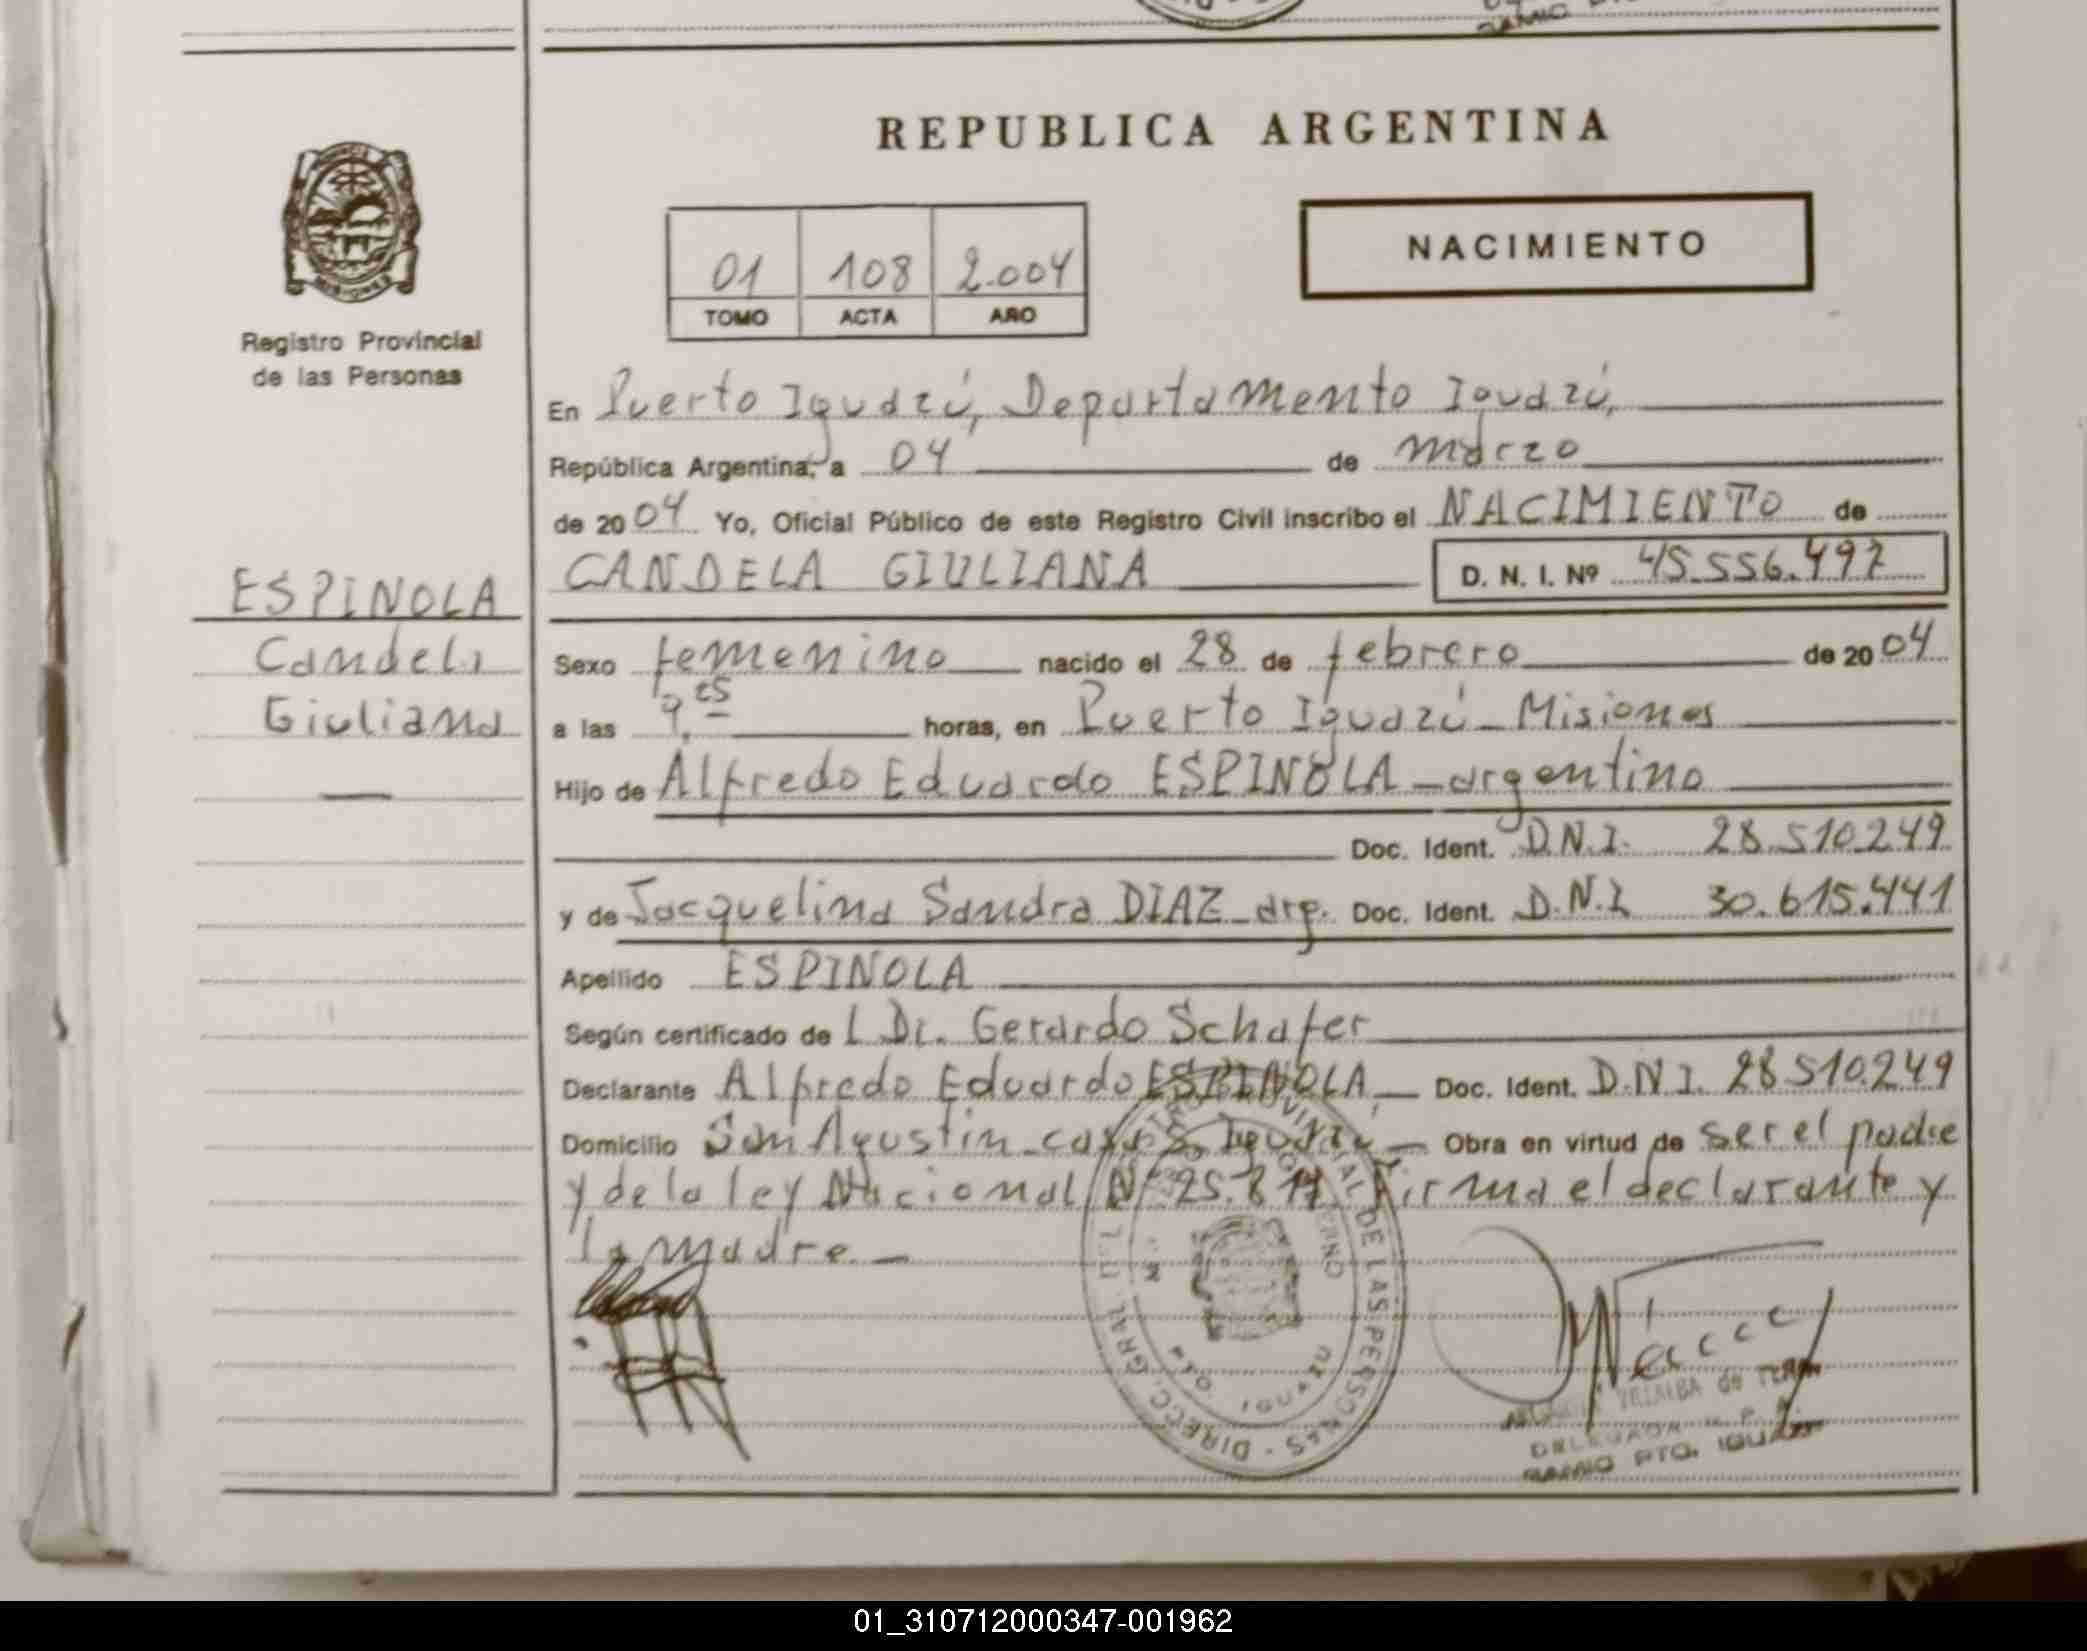 REPUBLICA ARGENTINA
NACIMIENTO
01 108 2.004
TOMO ACTA AÑO
Registro Provincial
de las Personas
En Puerto Iguazú, Departamento Iguazú,
República Argentina, a 04 de marzo
de 2004 Yo, Oficial Público de este Registro Civil inscribo el NACIMIENTO de
CANDELA GIULIANA D. N. I. Nº 45.556.497
ESPINOLA
Candela
Giuliana
Sexo femenino nacido el 28 de febrero de 2004
a las horas, en Puerto Iguazú - Misiones
Hijo de Alfredo Eduardo ESPINOLA - argentino
Doc. Ident. D.N.I. 28.510.249
y de Jacquelina Sandra DIAZ - arg. Doc. Ident. D.N.I. 30.615.441
Apellido ESPINOLA
Según certificado de l Dr. Gerardo Schafer
Declarante Alfredo Eduardo ESPINOLA, Doc. Ident. D.N.I. 28.510.249
Domicilio San Agustin Iguazú Obra en virtud de ser el padre
y de la ley Nacional Nº Firma el declarante y
la madre. -
DIRECC. GRAL. DE LAS PERSONAS
PTO. IGUAZU
VILLALBA de
PTO. IGUAZU
01_310712000347-001962